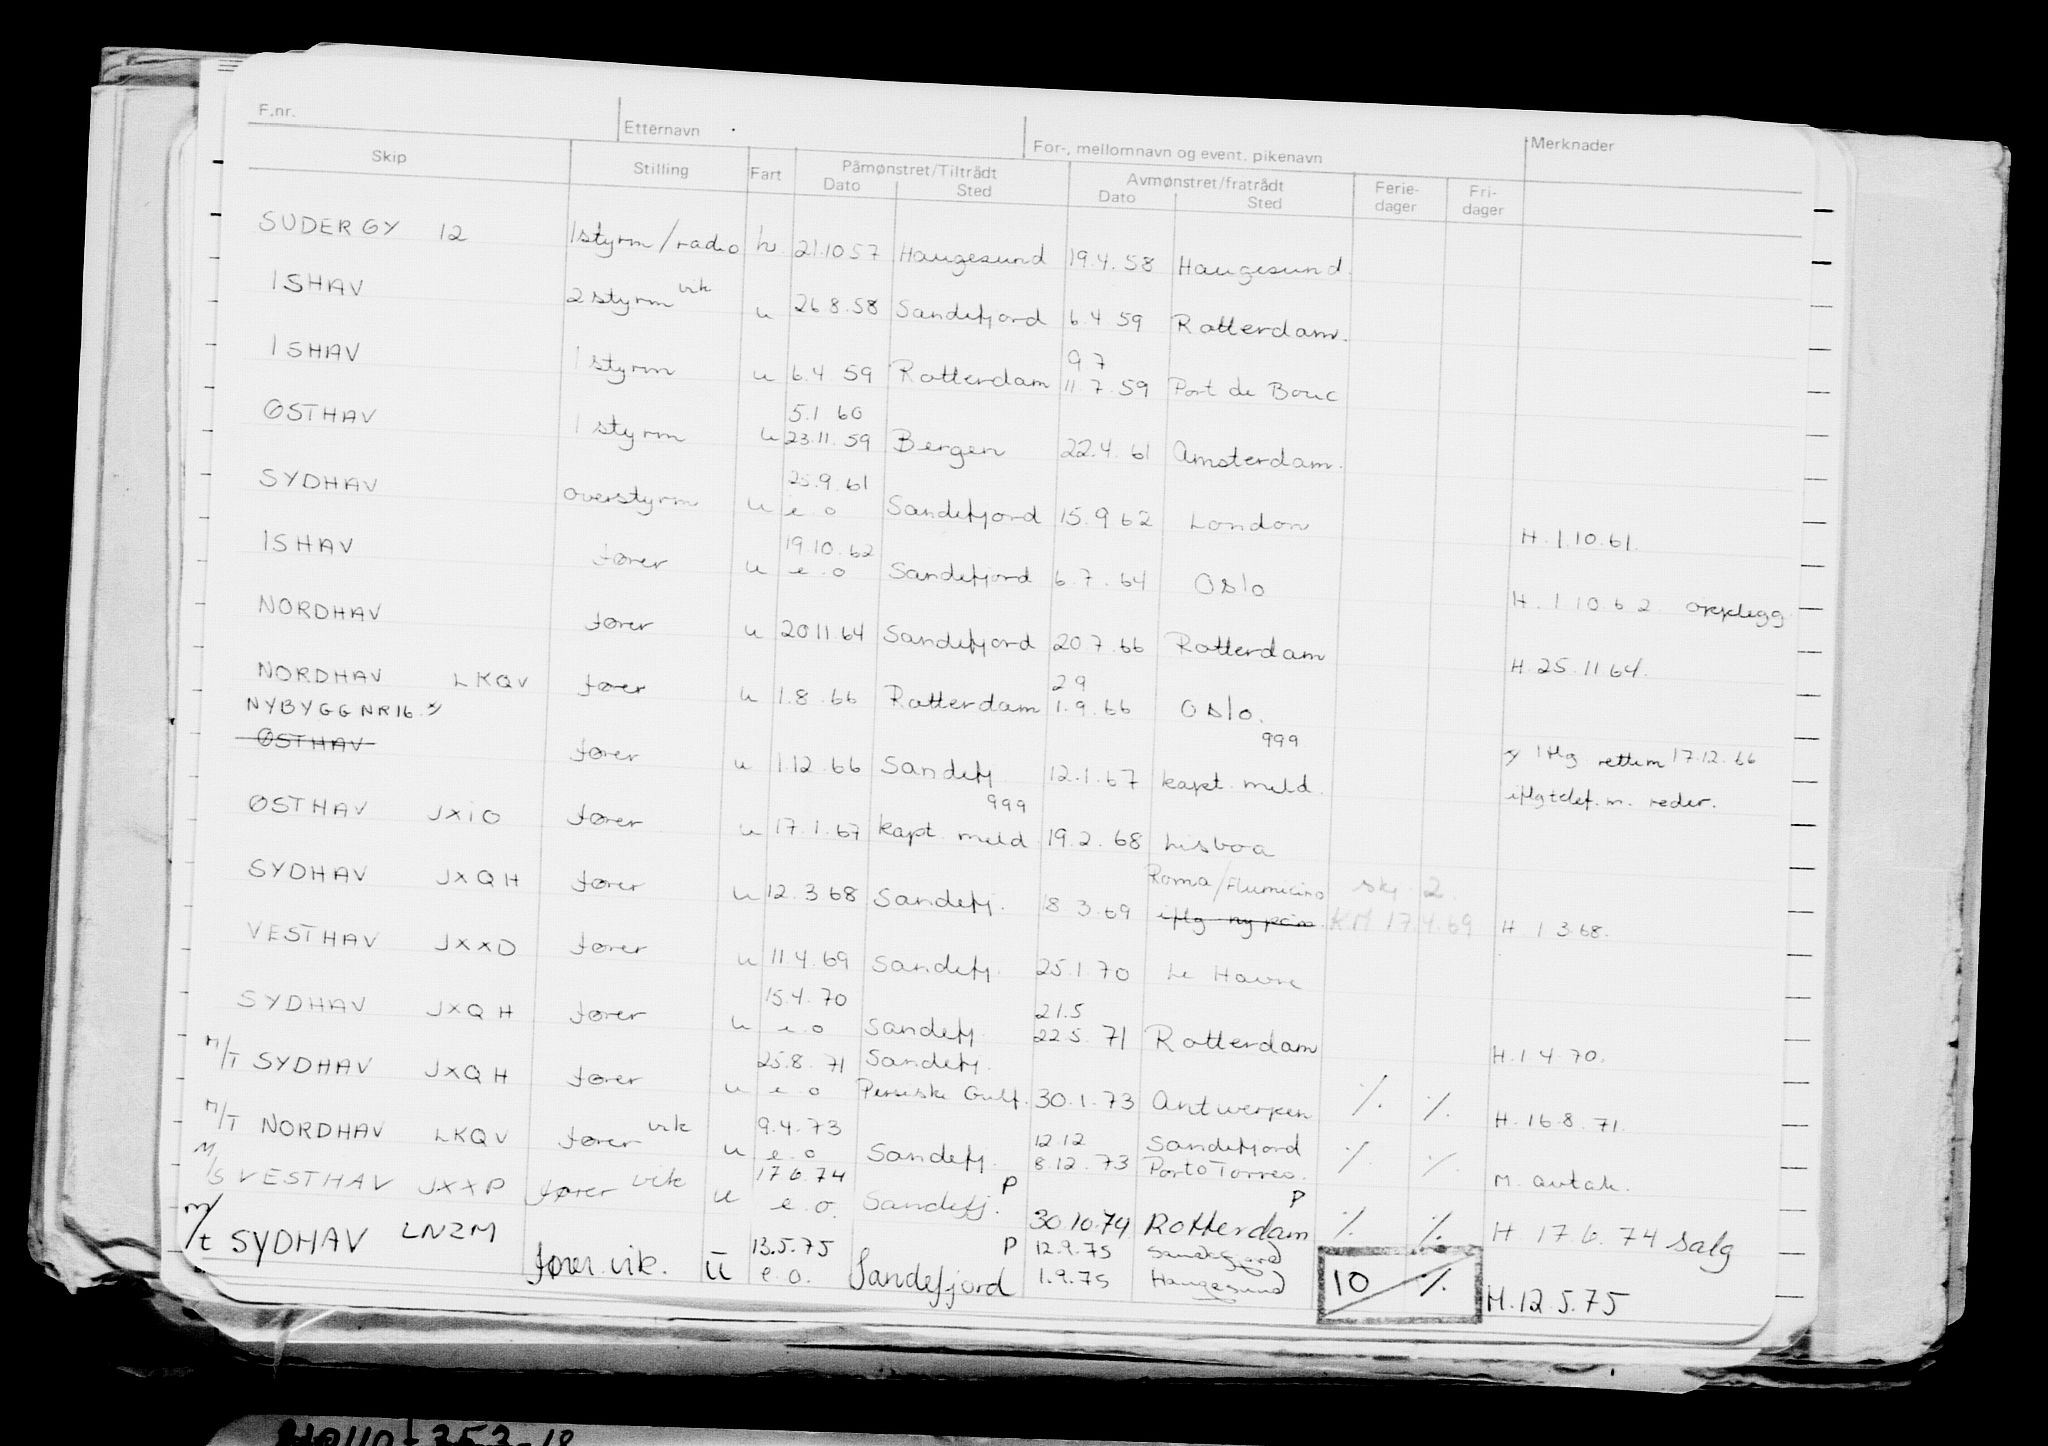 F.nr. Etternavn For-, mellomnavn og event. pikenavn Merknader
Skip Stilling Fart Påmønstret/Tiltrådt Avmønstret/fratrådt Ferie- Fri-
Dato Sted Dato Sted dager dager
SUDERGY 12 1styrm/radio h. 21.10 57 Haugesund 19.4.58 Haugesund.
ISHAV 2 styrm vik u 26 8.58 Sandefjord 6.4 59 Rotterdam.
9 7
ISHAV 1 styrm u 6.4 59 Rotterdam 11.7.59 Port de Bouc
5.1 60
ØSTHAV 1 styrm u 23.11.59 Bergen 22.4.61 Amsterdam.
25.9.61
SYDHAV overstyrm u e.o Sandefjord 15.9 62 London H.1.10.61.
19.10.62
ISHAV fører u e.o Sandefjord 6.7.64 Oslo H.1 10.6 2 opplegg
NORDHAV fører u 20 11.64 Sandefjord 20 7.66 Rotterdam H.25.11 64.
2 9
NORDHAV LKQV fører u 1.8.66 Rotterdam 1.9.66 Oslo.
NYBYGG NR 16. x/ 999
ØSTHAV fører u 1.12.66 Sandefj 12.1.67 kapt. meld. x/ iflg rettem 17.12.66
999 iflg telef. m. reder.
ØSTHAV JXIO fører u 17.1.67 kapt. meld 19.2.68 Lisboa
Roma/Fiumicino skj. 2.
SYDHAV JXQH fører u 12.3 68 Sandefj. 18.3.69 iflg ny påm. KM 17.4.69 H.1 3.68.
VESTHAV JXXO fører u 11.4.69 Sandefj. 25.1.70 Le Havre
15.4.70 21.5
SYDHAV JXQH fører u e.o Sandefj. 22.5.71 Rotterdam H.1 4.70.
25.8.71 Sandefj.
M/T SYDHAV JXQH fører u e.o Persiske Gulf. 30.1.73 Antwerpen ./. ./. H.16.8.71.
9.4.73 12.12 Sandefjord
M/T NORDHAV LKQV fører vik u e.o Sandefj. 8.12.73 Porto Torres. ./. ./. M. avtak.
17.6.74 P P
M/S VESTHAV JXXP fører vik u e.o. Sandefj. 30.10.74 Rotterdam ./. ./. H 17.6.74 salg
13.5.75 P 12.9.75 Sandefjord
M/t SYDHAV LNZM fører vik. u e.o. Sandefjord 1.9.75 Haugesund 10 ./. H.12.5.75